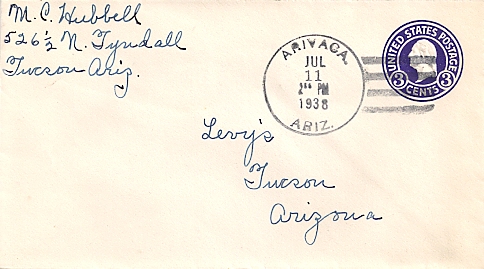 M. C. Hubbell
526 1/2 N. Tyndall
Tucson Ariz.
ARIVACA.
JUL
11
2 PM
1938
ARIZ.
UNITED STATES POSTAGE
3 CENTS 3
Levy's
Tucson
Arizona